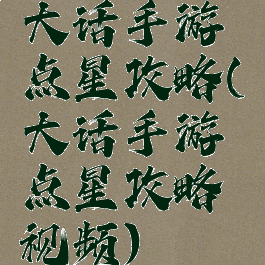 大话手游
点星攻略(
大话手游
点星攻略
视频)